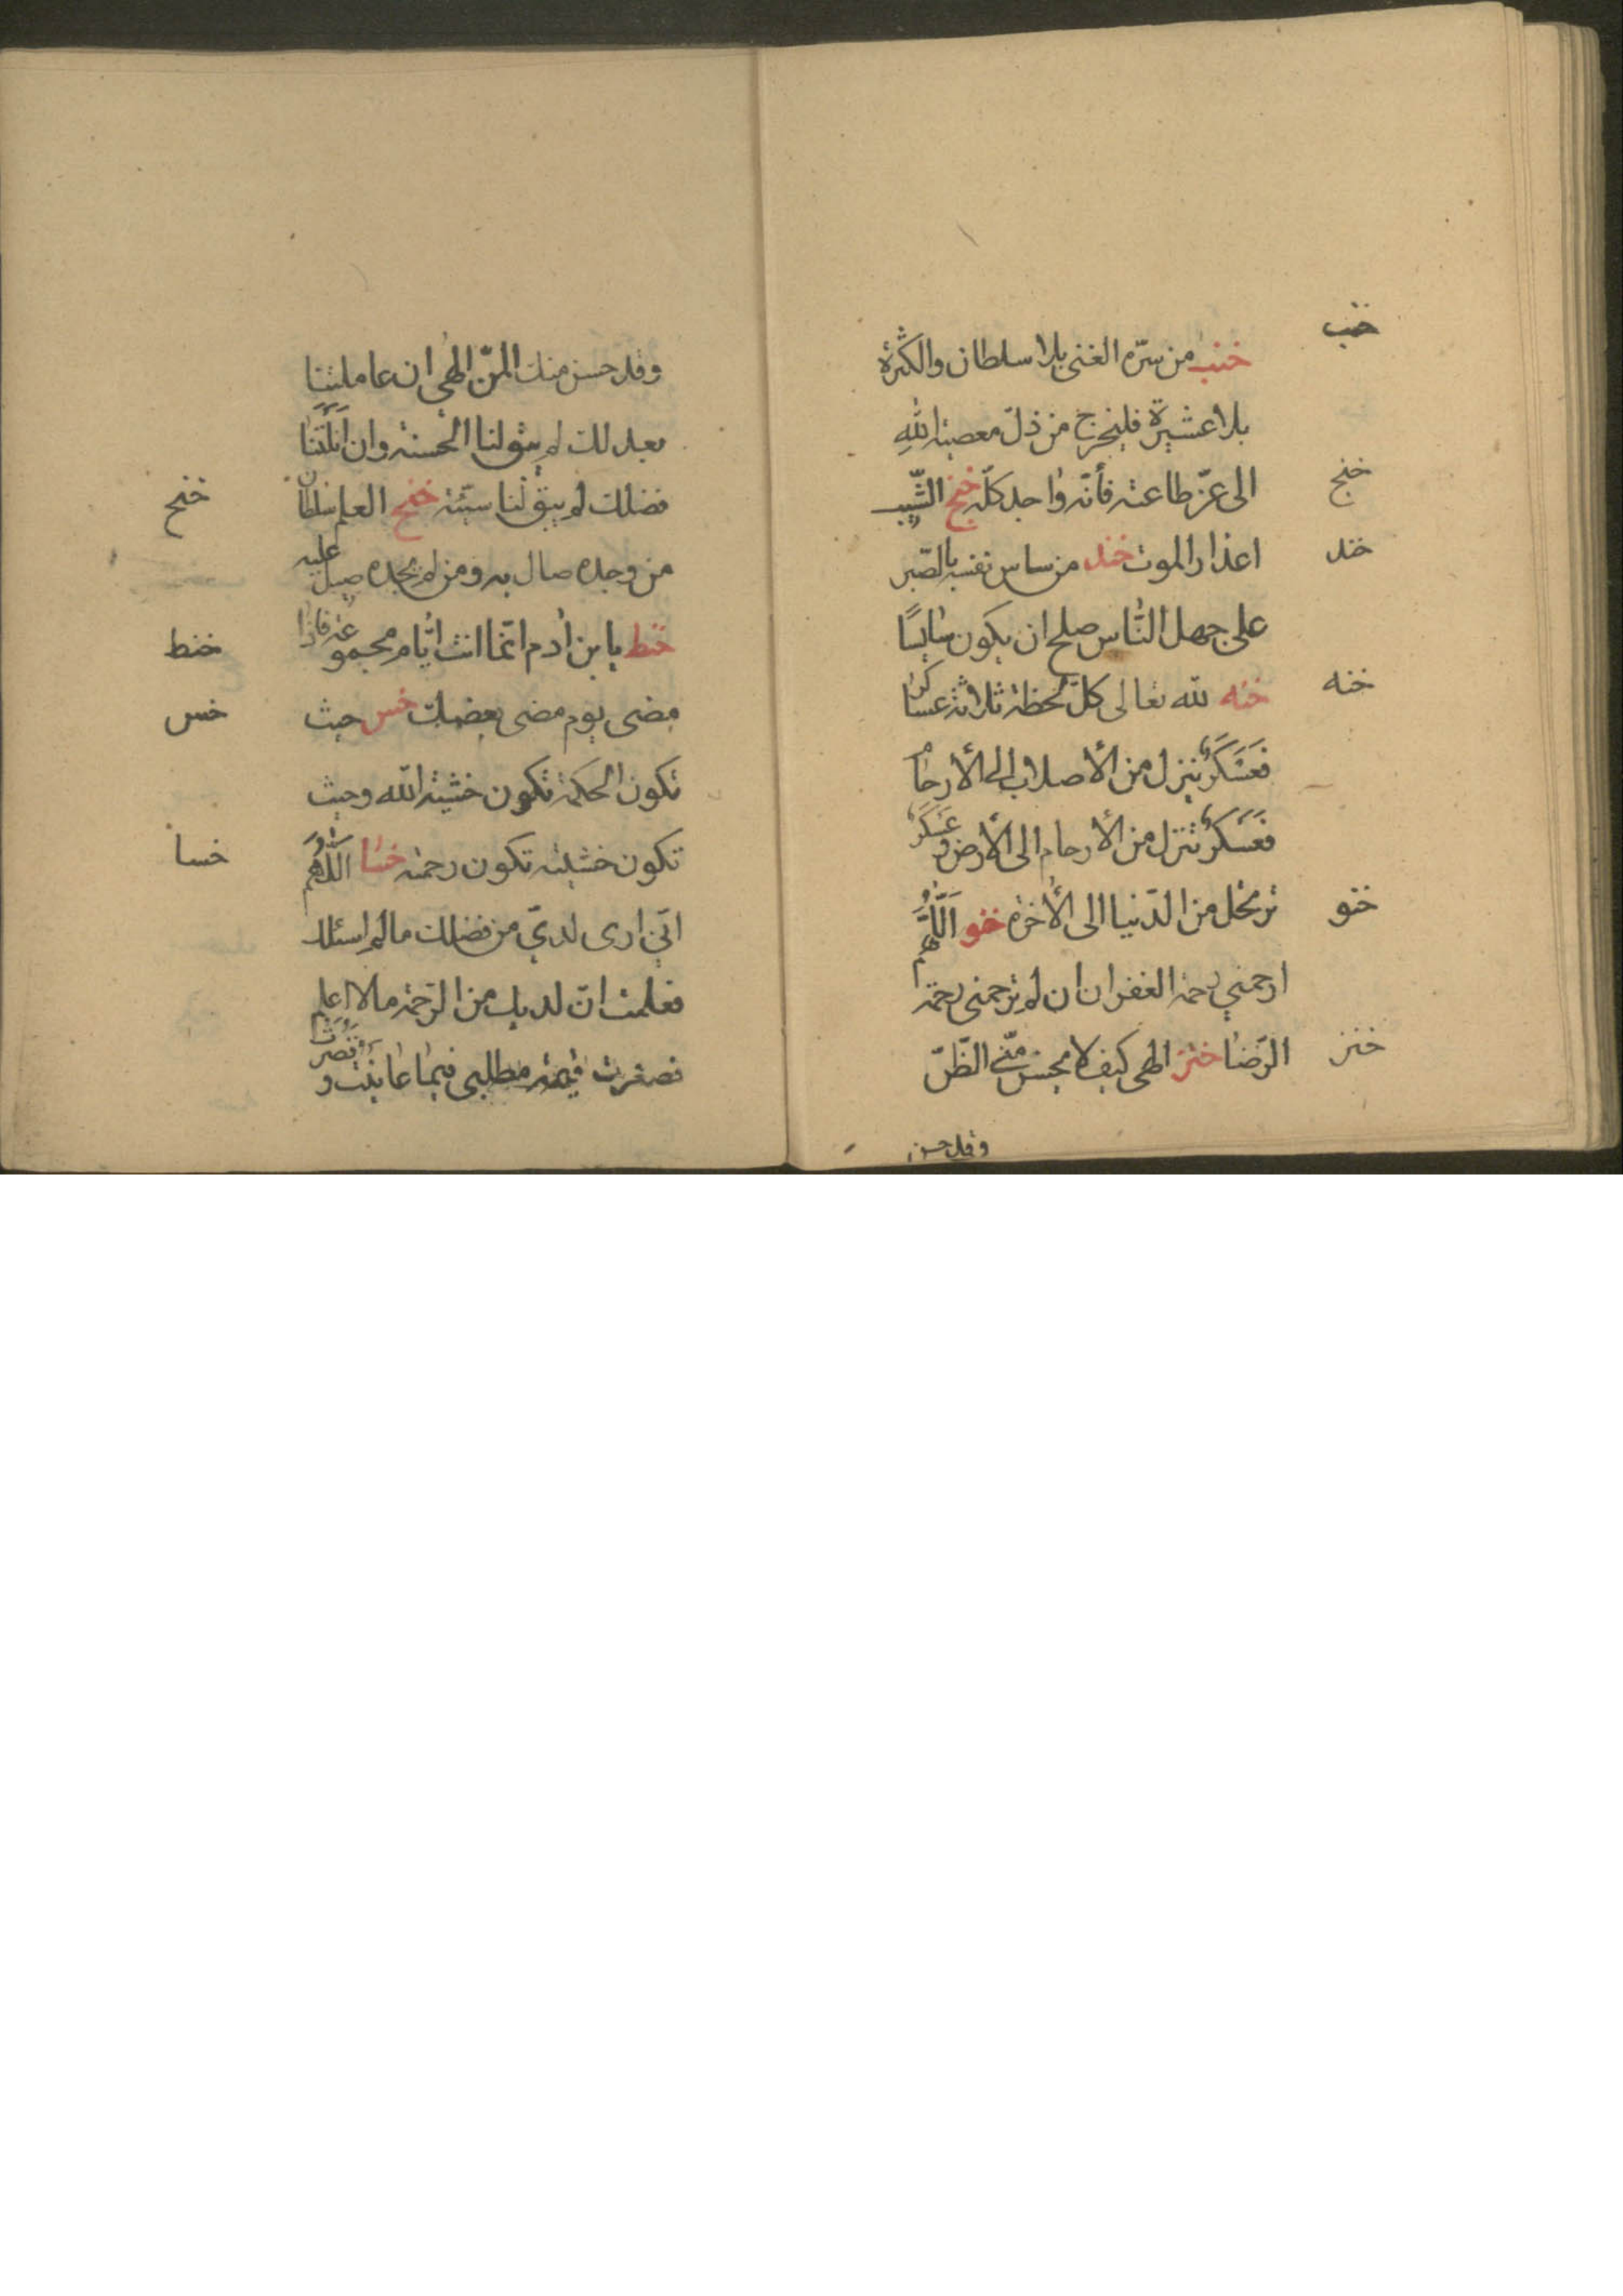 خنب
خنب من سرّه الغنى بلا سلطان والكثرة
بلا عشيرة فليخرج من ذلّ معصية الله
الى عزّ طاعته فأنّه واجد كلّه خنج الشّيب
خنج
اعذار الموت خند من ساس نفسه بالصّبر
خند
على جهل النّاس صلح ان يكون سايسًا
خنه لله تعالى كلّ لحظة ثلاثة عساكر
خنه
فَعَسْكَرٌ ينزل من الأصلاب الى الأرحام
فَعَسْكَرٌ تنزل من الأرحام الى الأرض و عَسْكَرٌ
ترتحل من الدّنيا الى الأخرة خنو اَللّهُمَّ
خنو
ارحمني رحمة الغفران ان لم ترحمني رحمة
الرّضا خنز الهى كيف لا يحسن منّي الظّنّ
خنز
وقد حسن
وقد حسن منك المنّ الهى ان عاملتنا
بعدلك لم يبق لنا الحسنة وان اَنَلْتَنَا
فضلك لم يبق لنا سيّئة خنح العلم سلطان
خنح
من وجده صال به ومن لم يجده صيل عليه
خنط يا بن ادم انّما انت ايّام مجموعة فاذا
خنط
مضى يوم مضى بعضك خس حيث
خس
تكون الحكمة تكون خشية الله وحيث
تكون خشيته تكون رحمته خسا اَللّهُمَّ
خسا
انّي ارى لديّ من فضلك ما لم اسئلك
فعلمت انّ لديك من الرّحمة ما لا اعلم
فصغرت قيمة مطلبى فيما عاينت و قَصُرَتْ